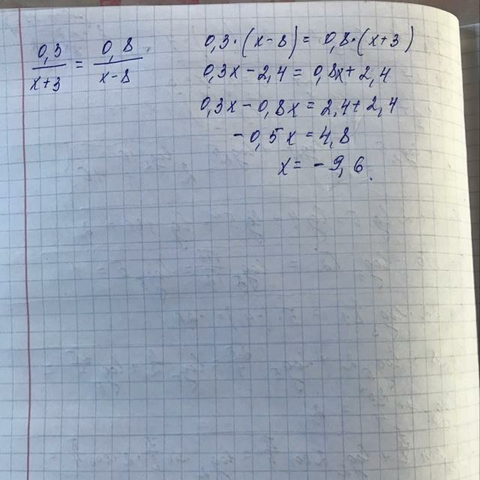 0,3/(x+3) = 0,8/(x-8)
0,3·(x-8) = 0,8·(x+3)
0,3x-2,4 = 0,8x+2,4
0,3x-0,8x = 2,4+2,4
-0,5x = 4,8
x = -9,6.